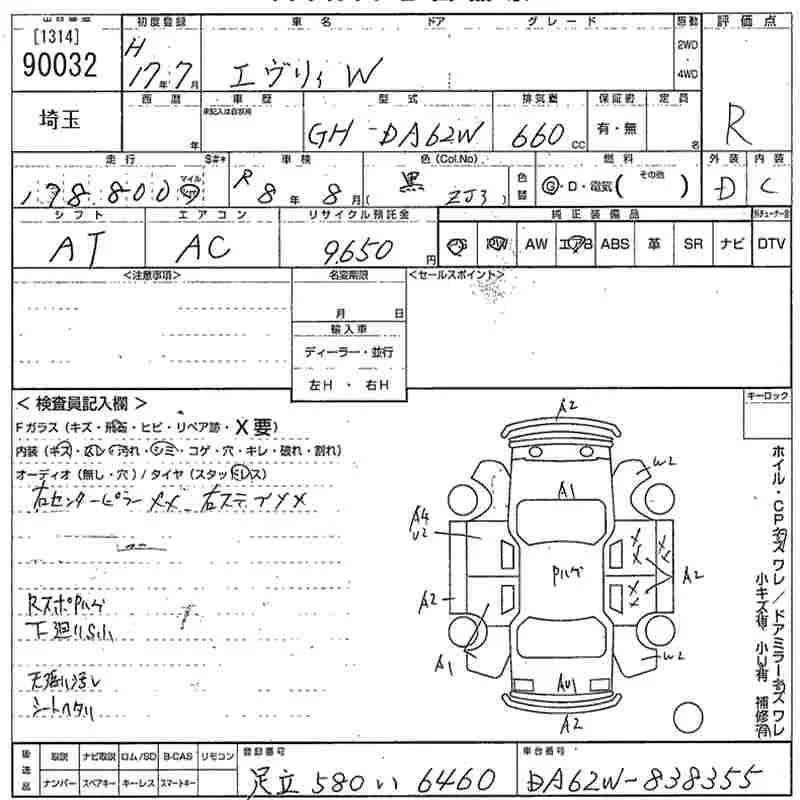 [1314]
90032
埼玉
初度登録
H
17年7月
車名
ドア
グレード
エヴリィW
駆動
2WD
4WD
評価点
R
西暦
年
車歴
未記入は自家用
型式
GH-DA62W
排気量
660cc
保証書
有・無
定員
名
走行
S#*
178,800
マイル
車検
R8年8月
色(Col.No)
黒
ZJ3
色替
燃料
G・D・電気( その他 )
外装
D
内装
C
シフト
AT
エアコン
AC
リサイクル預託金
9,650円
純正装備品
PS
PW
AW
エアB
ABS
革
SR
ナビ
DTV
<注意事項>
名変期限
月 日
輸入車
ディーラー・並行
左H・右H
<セールスポイント>
<検査員記入欄>
Fガラス(キズ・飛石・ヒビ・リペア跡・X要)
内装(キズ・スレ・汚れ・シミ・コゲ・穴・キレ・破れ・割れ)
オーディオ(無し・穴)/タイヤ(スタッドレス)
右センターピラーXX 右ステップXX
RスポPハゲ
下廻りS小
天張り汚し
シートヘタリ
キーロック
A2
A1
W2
A4
U2
Pハゲ
XX
XX
XX
A2
A2
A1
W2
AU1
A2
ホイル・CPキズ ワレ/ドアミラーキズ ワレ
小キズ有 小W有 補修有
後送品
取説
ナビ取説
ロム/SD
B-CAS
リモコン
ナンバー
スペアキー
キーレス
スマートキー
登録番号
足立 580 い 6460
車台番号
DA62W-838355